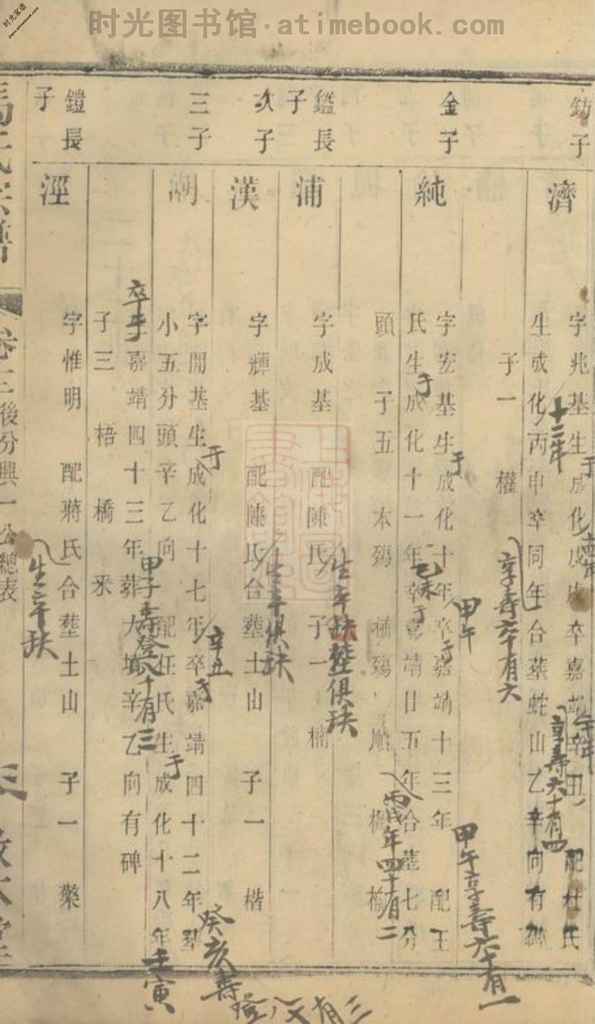 时光图书馆·atimebook.com
鈁子
濟
字兆基生成化卒嘉辛丑配杜氏
生成化丙申卒同年合塟蛇山乙辛向有碑
子一 權
金子
純
字宏基生成化十年卒嘉靖十三年 配王
氏生成化十一年卒嘉靖廿五年合塟七分
頭 子五 本殤 殤 順
鑑長子
浦
字成基 配陳氏 子一 楠
次子
漢
字輝基 配陳氏合塟土山 子一 楷
三子
湖
字開基生成化十七年卒嘉靖四十二年塟
小五分頭辛乙向 配汪氏生成化十八年
嘉靖四十三年葬大辛乙向有碑
子三 梧 橋 釆
鎧長子
涇
字惟明 配蔣氏合塟土山 子一 榮
馬氏宗譜
卷三後分興一公總表
三
敦本堂
十二年
享壽六十有四
享壽六十有六
于
甲午
甲午享壽六十有一
于
乙未于
丙戌年四十有二
生卒缺塟俱缺
生卒俱缺
于
辛丑于
癸亥壽登八十有三
于
壬寅
卒于
甲子壽登八十有三
生卒缺